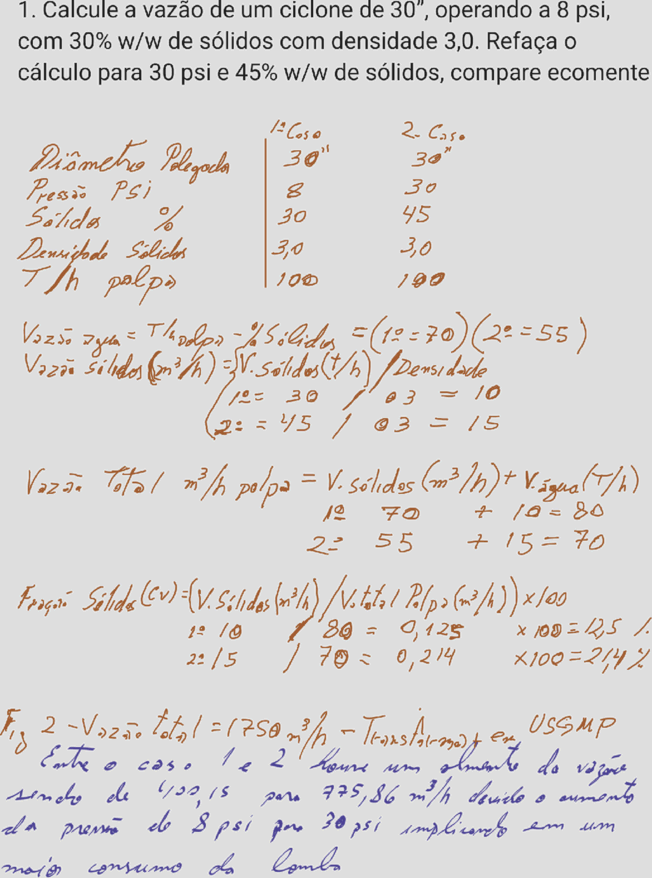 1. Calcule a vazão de um ciclone de 30”, operando a 8 psi,
com 30% w/w de sólidos com densidade 3,0. Refaça o
cálculo para 30 psi e 45% w/w de sólidos, compare ecomente
1º Caso 2º Caso
Diâmetro Polegada 30" 30"
Pressão PSi 8 30
Sólidos % 30 45
Densidade Sólidos 3,0 3,0
T/h polpa 100 100
Vazão agua = T/h polpa - % Sólidos = (1º = 70) (2º = 55)
Vazão sólidos (m³/h) = V. Sólidos (t/h) / Densidade
1º = 30 / 03 = 10
2º = 45 / 03 = 15
Vazão Total m³/h polpa = V. sólidos (m³/h) + V. água (T/h)
1º 70 + 10 = 80
2º 55 + 15 = 70
Fração Sólidos (CV) = (V. Sólidos (m³/h) / V. total Polpa (m³/h)) x 100
1º 10 / 80 = 0,125 x 100 = 12,5 %
2º 15 / 70 = 0,214 x 100 = 21,4 %
Fig 2 - Vazão total = 1750 m³/h - em USGMP
Entre o caso 1 e 2 houve um almento da vazão
sendo de 400,15 para 775,86 m³/h devido o aumento
da pressão de 8 psi para 30 psi implicando em um
maior consumo da bomba